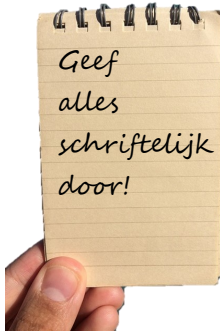 Geef
alles
schriftelijk
door!